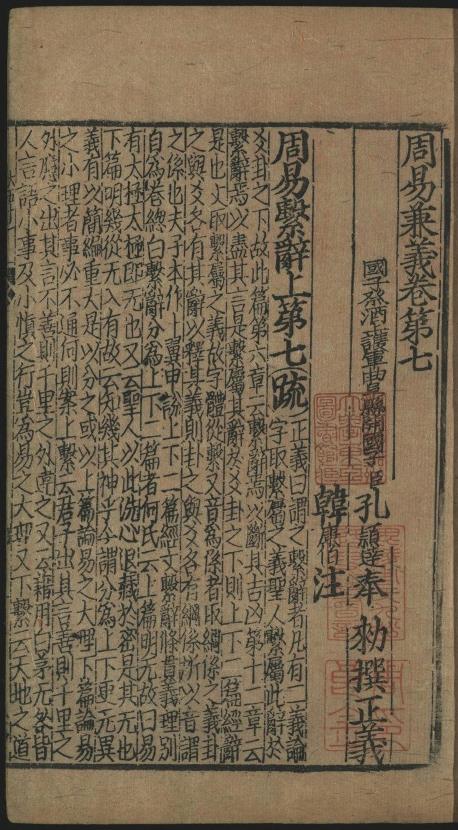 周易兼義卷第七
國子祭酒上護軍曲阜縣開國子臣孔穎達奉 勅撰正義
韓康伯注
周易繫辭上第七疏正義曰謂之繫辭者凡有二義論
字取繫屬之義聖人繫屬此辭於
爻卦之下故此篇第六章云繫辭焉以斷其吉凶第十二章云
繫辭焉以盡其言是繫屬其辭於爻卦之下則上下二篇經辭
是也文取繫屬之義故字體從繫又音為係者取綱係之義卦
之與爻各有其辭以釋其義則卦之與爻各有綱係所以音謂
之係也夫子本作十翼申說上下二篇經文繫辭條貫義理別
自為卷總曰繫辭分為上下二篇者何氏云上篇明无故曰易
有太極太極即无也又云聖人以此洗心退藏於密是其无也
下篇明幾從无入有故云知幾其神乎今謂分為上下更无異
義有以簡編重大是以分之或以上篇論易之大理下篇論易
之小理者事必不通何則案上繫云君子出其言善則千里之
外應之出其言不善則千里之外違之又云藉用白茅无咎皆
人言語小事及小慎之行豈為易之大理又下繫云天地之道